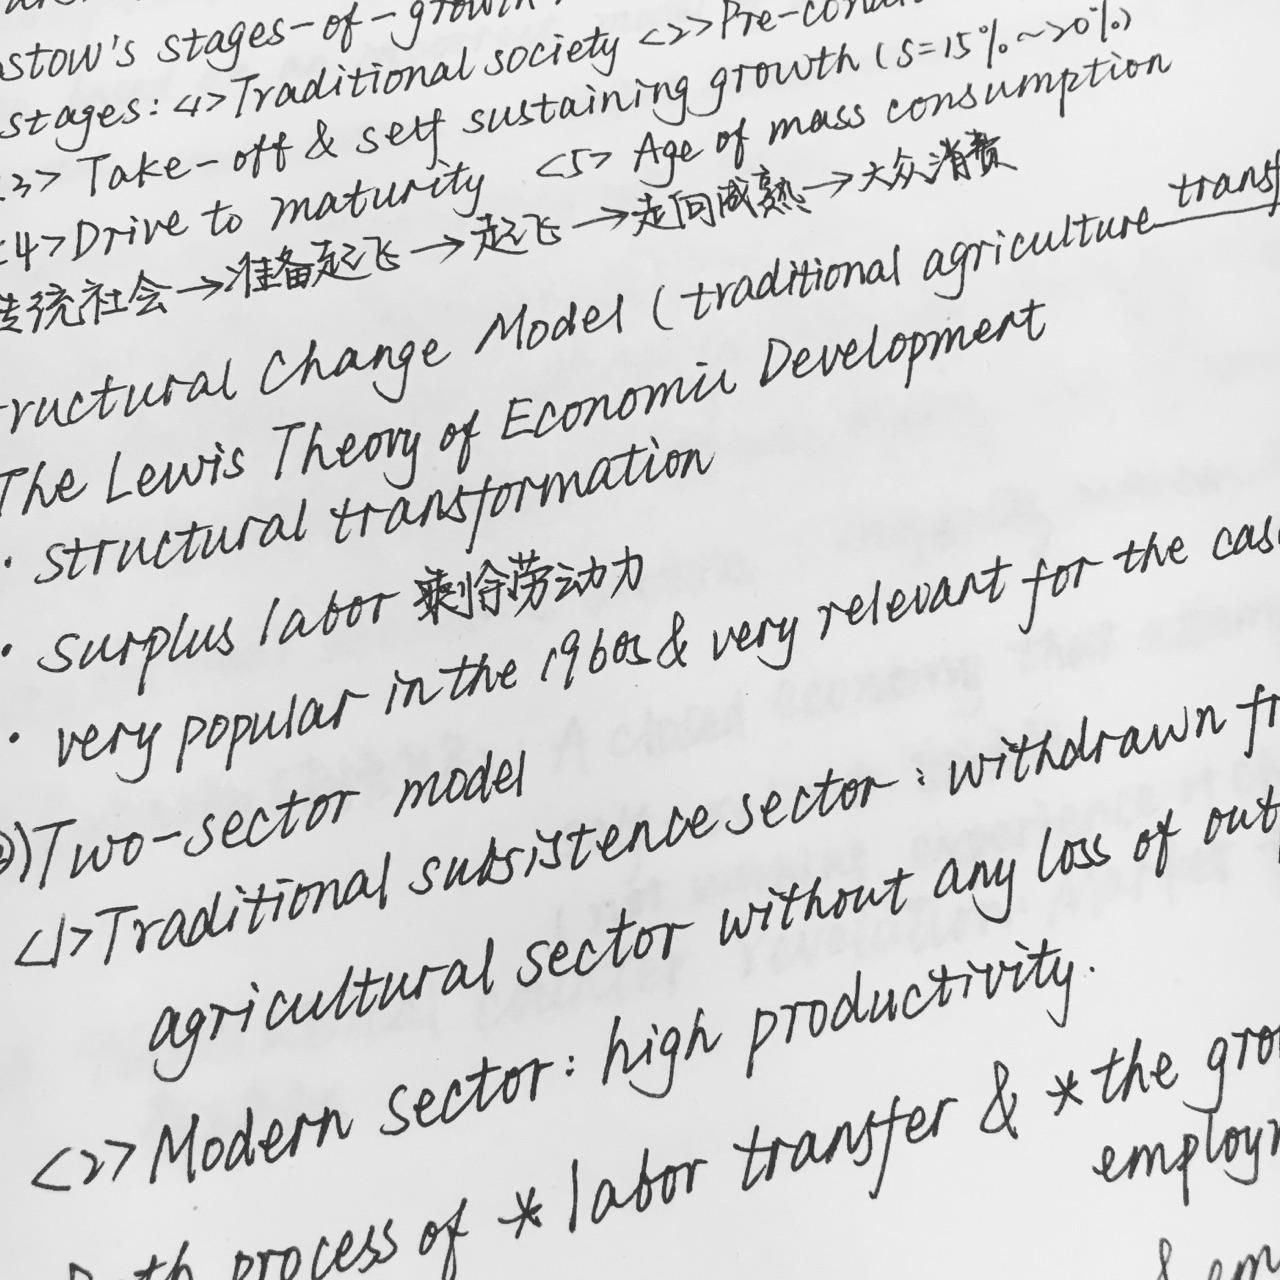 stow's stages-of-growth
stages: <1> Traditional society <2> Pre-cond
<3> Take-off & self sustaining growth (s=15%~20%)
<4> Drive to maturity <5> Age of mass consumption
传统社会→准备起飞→起飞→走向成熟→大众消费
ructural Change Model (traditional agriculture transf
The Lewis Theory of Economic Development
· structural transformation
· surplus labor 剩余劳动力
· very popular in the 1960s & very relevant for the cas
Two-sector model
<1> Traditional subsistence sector: withdrawn fr
agricultural sector without any loss of outp
<2> Modern sector: high productivity.
Both process of * labor transfer & * the gro
employm
& em